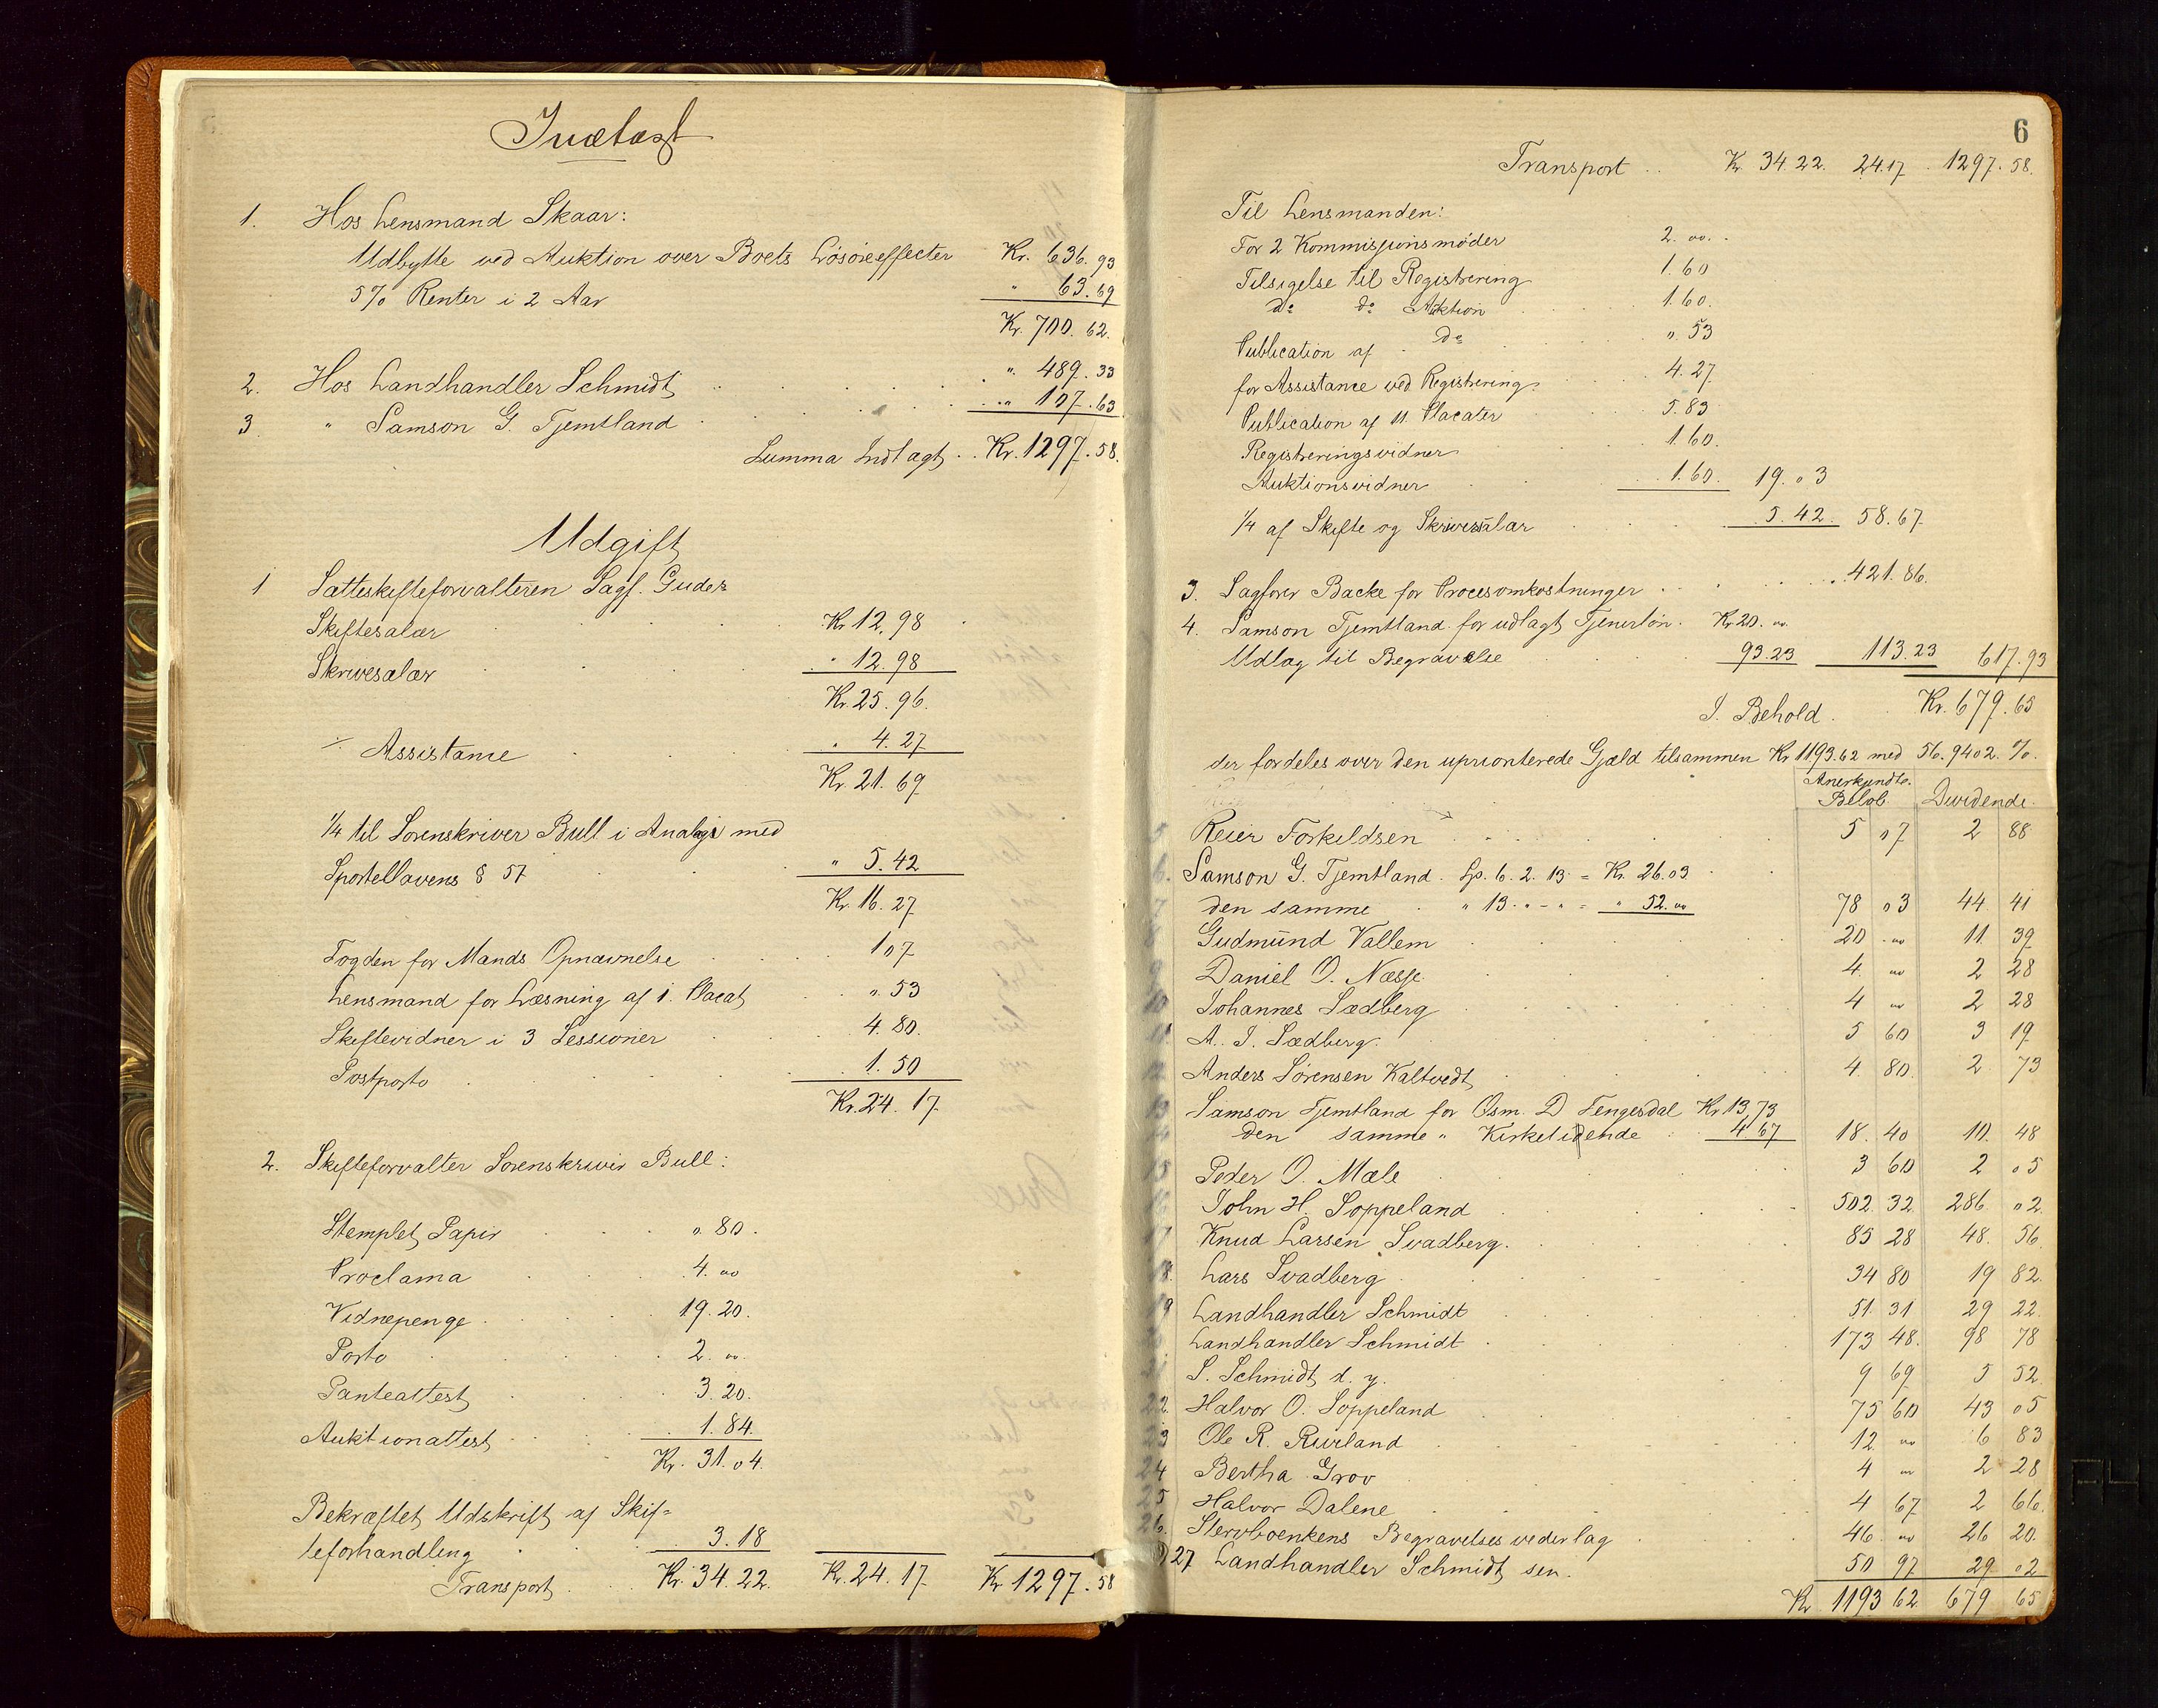 Indtægt
1. Hos Lensmand Skaar:
Udbytte ved Auktion over Boets Løsøreeffecter Kr. 636.93
5% Renter i 2 Aar " 63.69
Kr. 700.62.
2. Hos Landhandler Schmidt " 489.33
3 " Samson G. Tjemtland " 107.63
Summa Indtægt Kr. 1297.58.
Udgift
1 Sætteskifteforvalteren Sagf. Gude:
Skiftesalær Kr. 12.98
Skrivesalær " 12.98
Kr. 25.96.
÷ Assistance " 4.27
Kr. 21.69
1/4 til Sorenskriver Bull i Analogi med
Sportellovens § 57 " 5.42
Kr. 16.27
Fogden for Mands Opnævnelse 1 07
Lensmand for Læsning af 1. Placat " 53
Skiftevidner i 3 Sessioner 4.80.
Postporto 1.50
Kr. 24.17
2. Skifteforvalter Sorenskriver Bull:
Stemplet Papir " 80.
Proclama 4. "
Vidnepenge 19.20.
Porto 2. "
Panteattest 3.20.
Auktionattest 1.84.
Kr. 31.04.
Bekræftet Udskrift af Skif=
teforhandling 3.18
Transport Kr. 34.22. Kr. 24.17 Kr 1297.58
6
Transport Kr. 34.22. 24.17 1297.58.
Til Lensmanden:
For 2 Kommissionsmøder 2. "
Tilsigelse til Registrering 1.60
do do Auktion 1.60.
Publication af do " 53
for Assistance ved Registrering 4.27
Publication af 11 Placater 5.83
Registreringsvidner 1.60.
Auktionsvidner 1.60. 19.03
1/4 af Skifte og Skrivesalær 5.42. 58.67
3. Sagfører Backe for Procesomkostninger 421.86.
4. Samson Tjemtland for udlagt Tjenerløn Kr 20. "
Udlag til Begravelse 93.23 113.23 617.93
I Behold Kr. 679.65
der fordeles over den uprioriterede Gjæld tilsammen Kr 1193.62 med 56.9402 %.
Anerkjendte Beløb Dividende
5 Reier Torkildsen 5 07 2 88
6. Samson G. Tjemtland Sp. 6. 2. 13 = Kr. 26.03
7 den samme " 13 " - " = " 52. " 78 03 44 41
8 Gudmund Vallem 20 " 11 39
9 Daniel O. Næsse 4 " 2 28
10 Johannes Sædberg 4 " 2 28
11 A. J. Sædberg 5 60 3 19
12 Anders Sørensen Kaltvedt 4 80 2 73
13 Samson Tjemtland for Osm. D Tengesdal Kr 13,73
14 den samme " Kirketidende 4 67 18 40 10 48
15 Peder O. Mæle 3 60 2 05
16 John H. Soppeland 502 32 286 02
17 Knud Larsen Svadberg 85 28 48 56
18. Lars Svadberg 34 80 19 82
19 Landhandler Schmidt 51 31 29 22
20 Landhandler Schmidt 173 48 98 78
21 S. Schmidt d. y. 9 69 5 52
22. Halvor O. Soppeland 75 60 43 05
23 Ole R. Rivrland 12 " 6 83
24 Bertha Grov 4 " 2 28
25 Halvor Dalene 4 67 2 66
26. Stervboenkens Begravelsesvederlag 46 " 26 20
27 Landhandler Schmidt sen. 50 97 29 02
Kr 1193 62 679 65